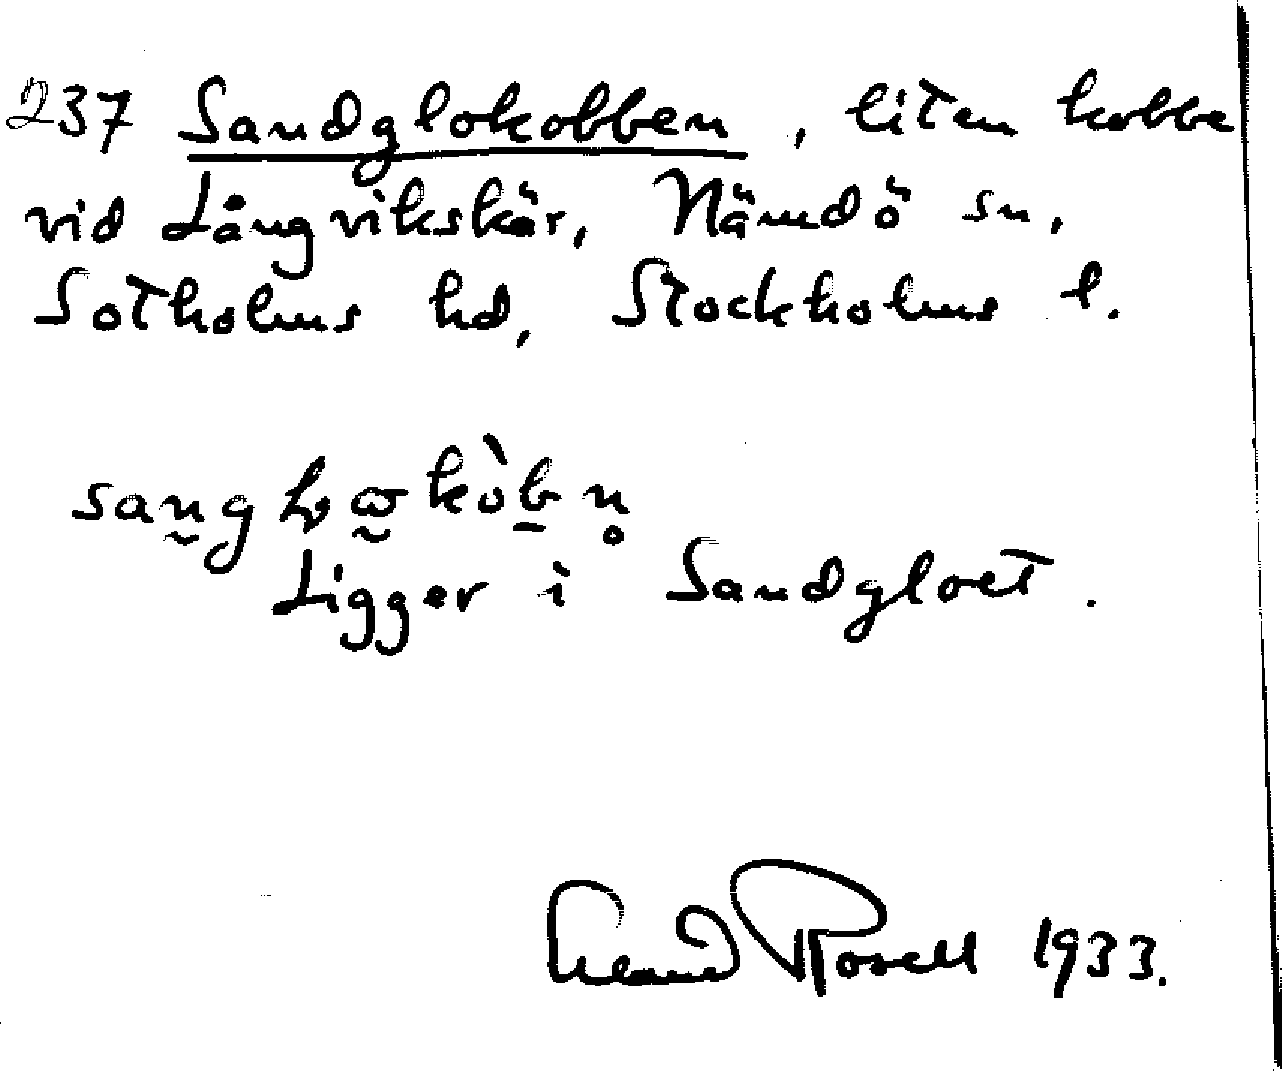 237 Sandglokobben, liten kobbe
vid Långvikskär, Nämdö sn,
Sotholms hd, Stockholms l.
Ligger i Sandgloet.
Rosell 1933.